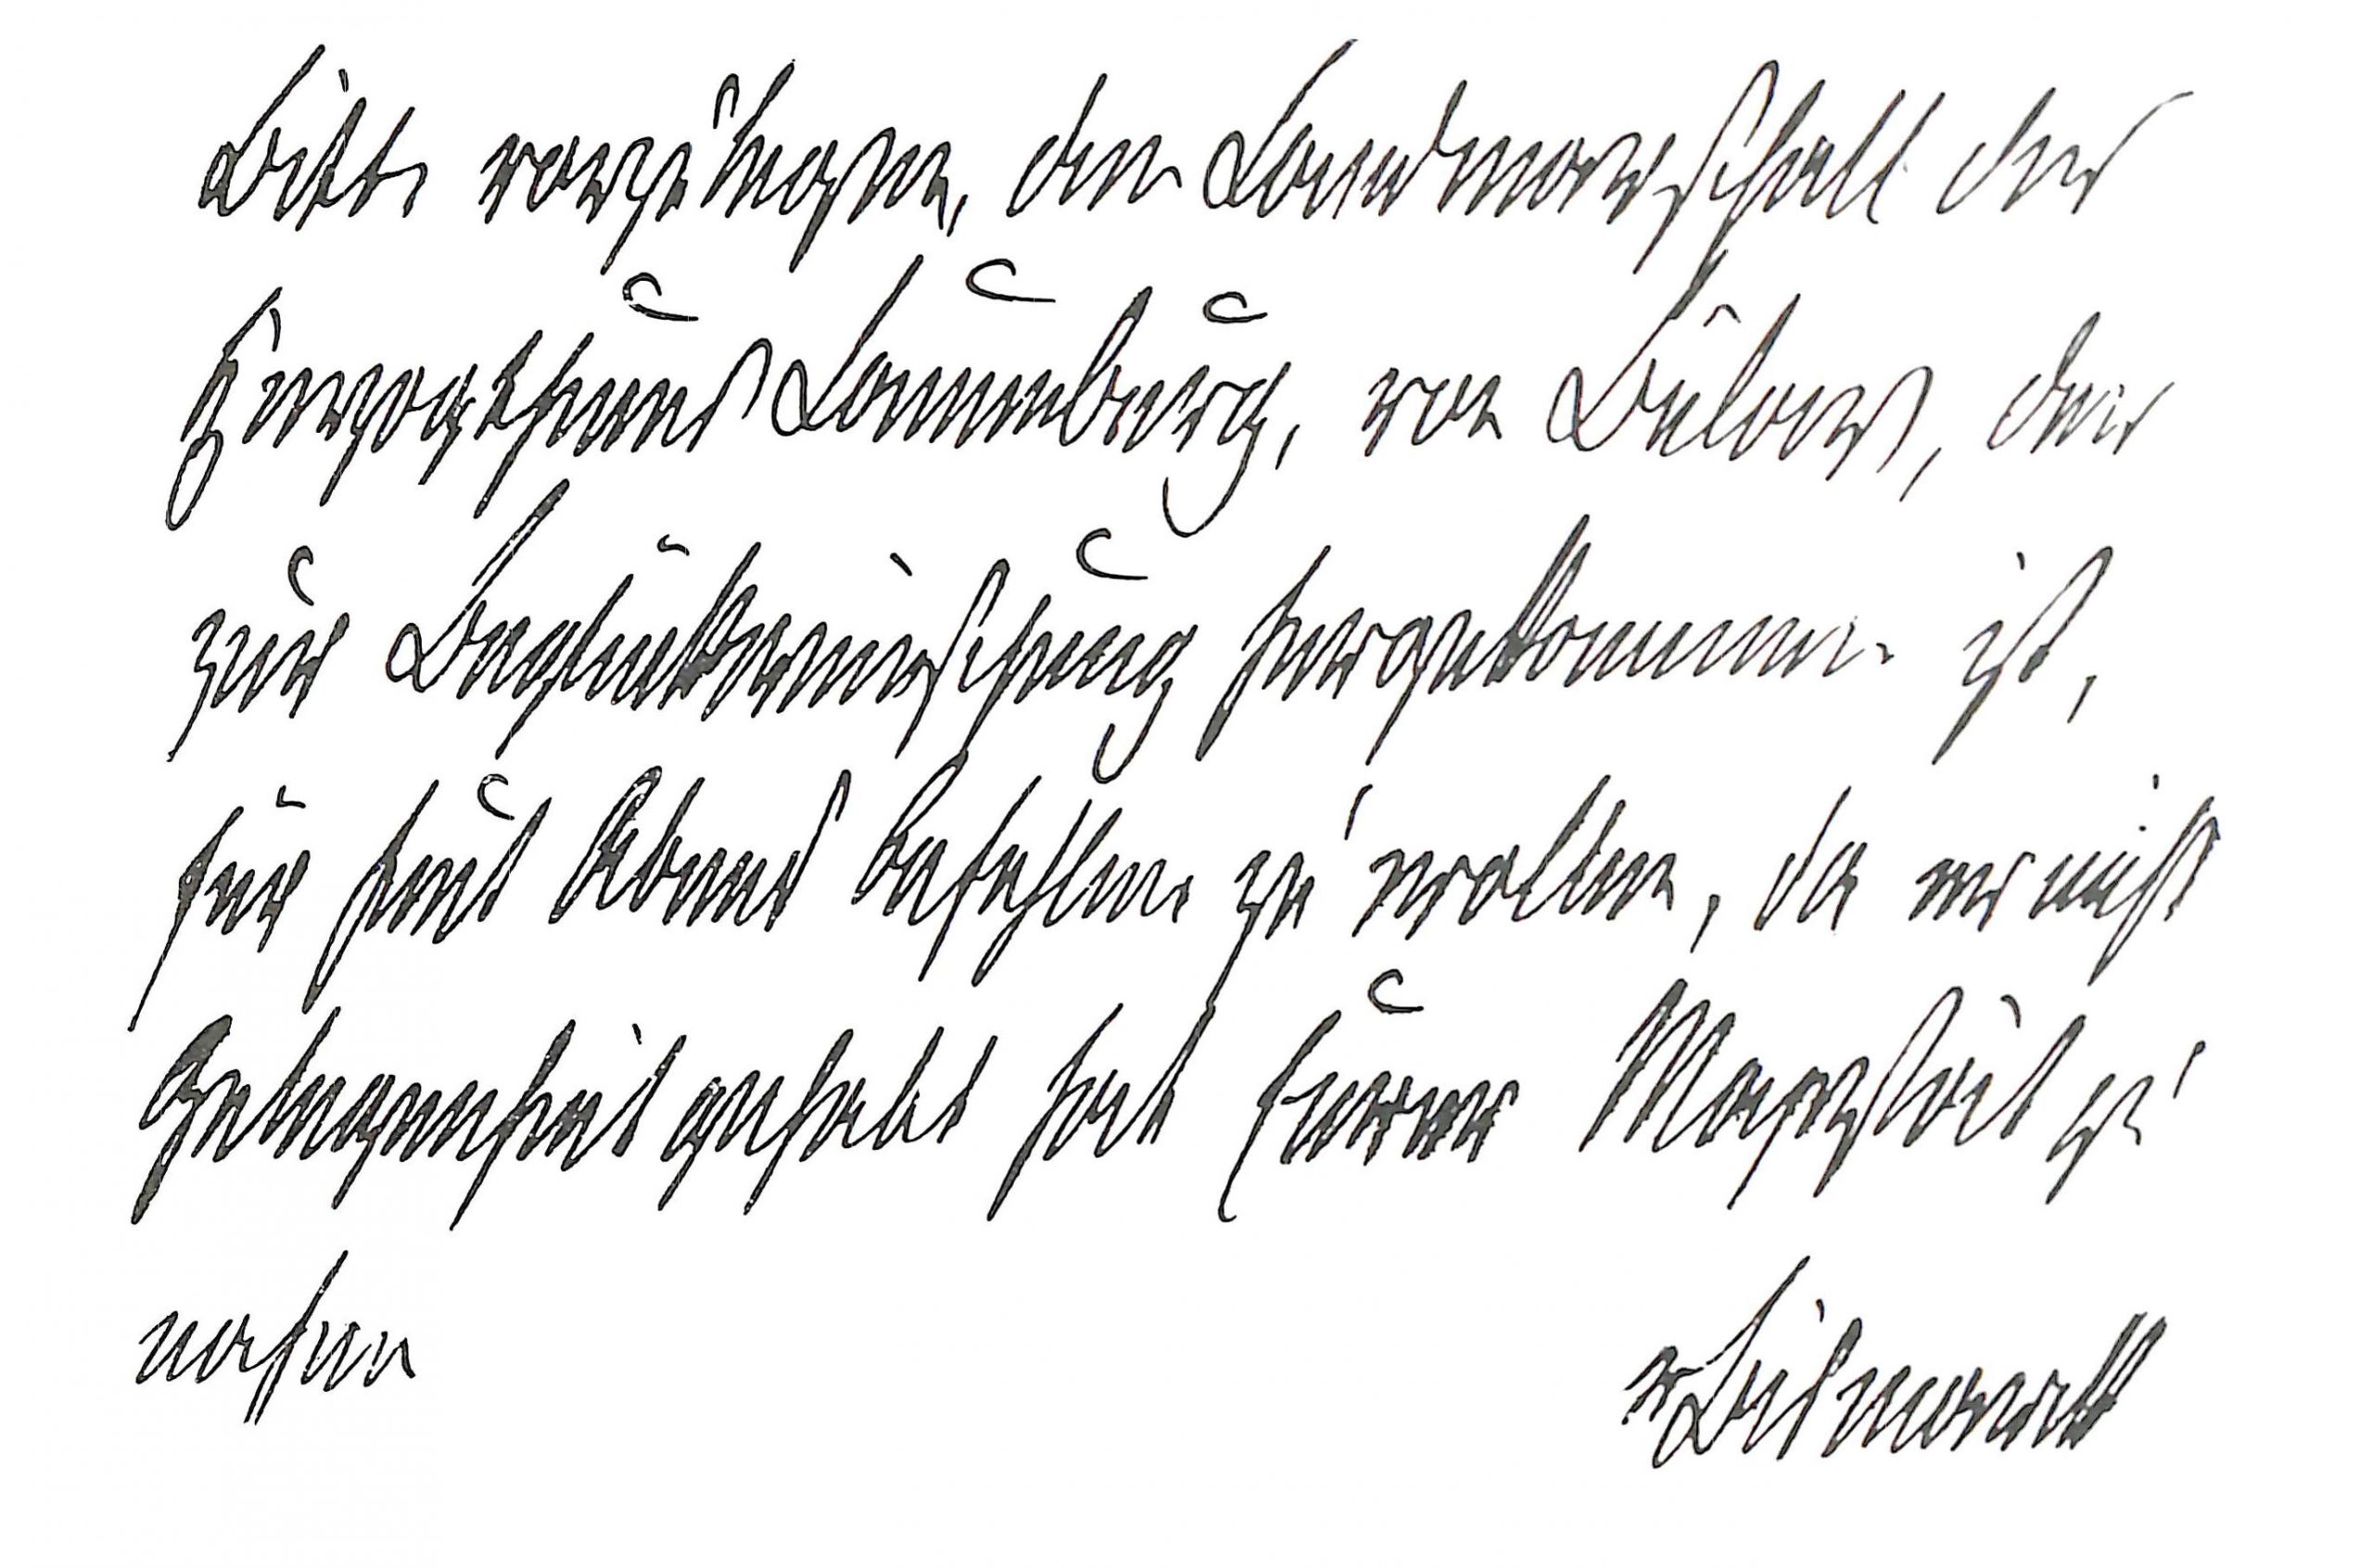 Bitte vorzutragen, den Landmarschall des
Herzogthums Lauenburg, von Bülow, der
zur Beglückwünschung hergekommen ist,
für heut Abend befehlen zu wollen, da er nicht
Gelegenheit gehabt hat Eurer Majestät zu
nahen
v Bismarck